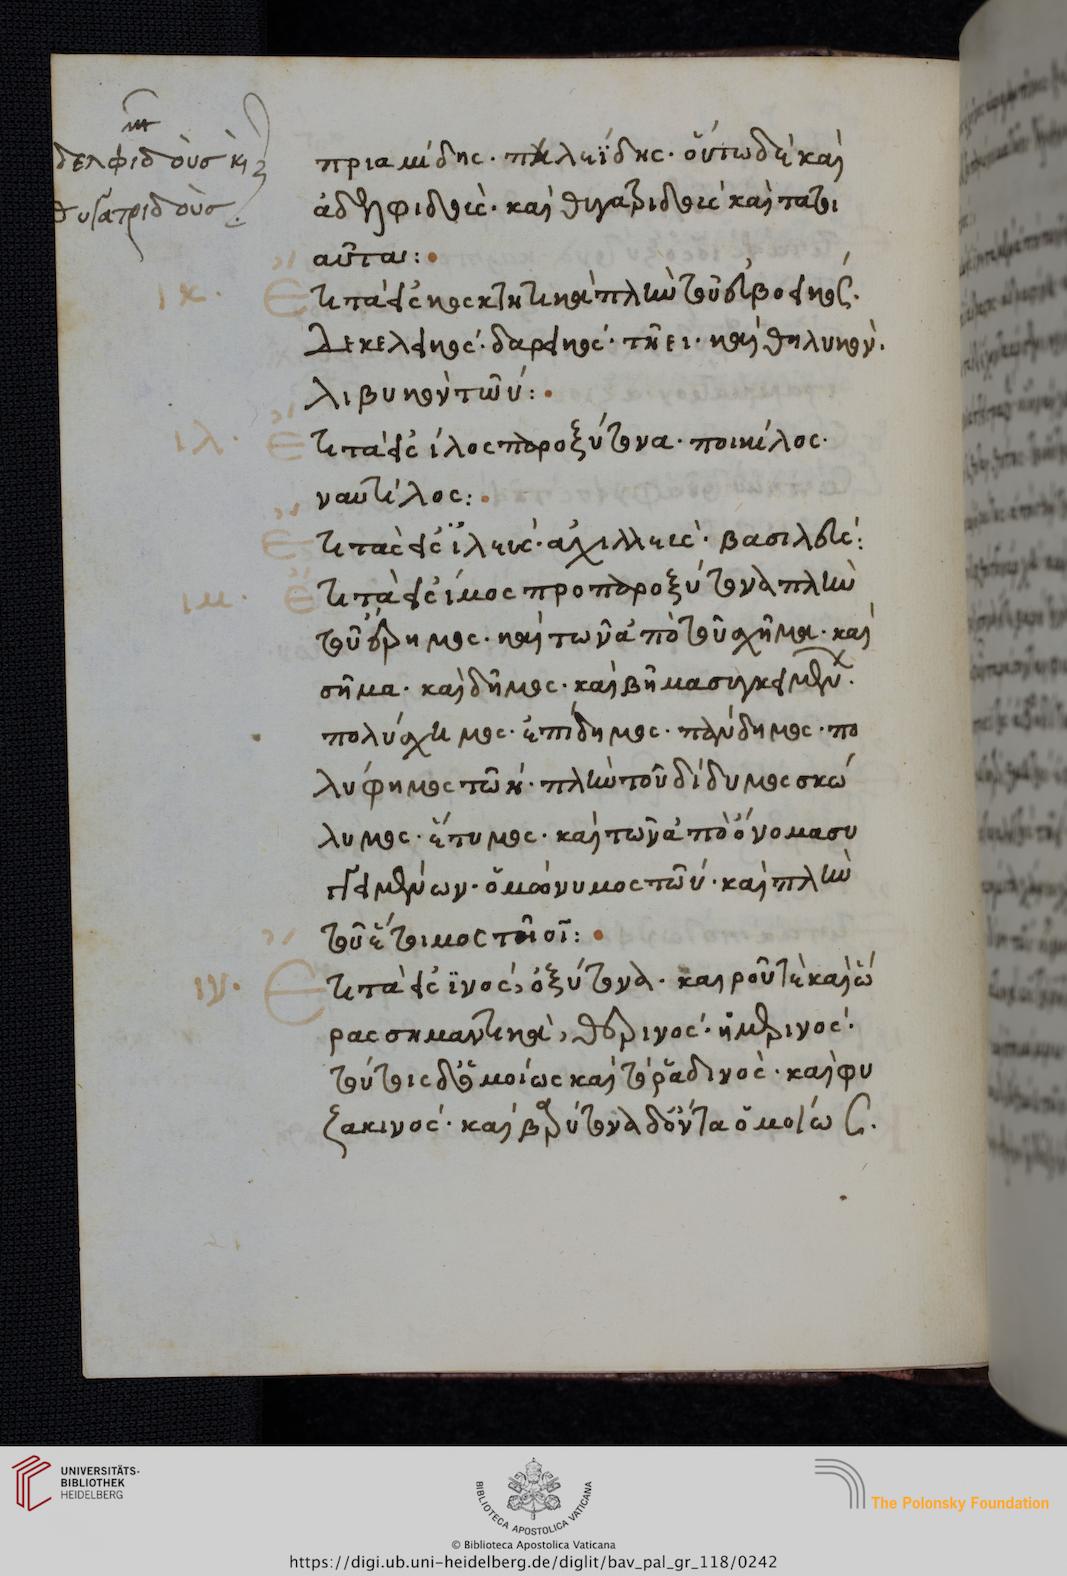 δελφιδοὺσ κ
θυγατριδοὺσ.
πριαμίδης· πηληϊδης· οὕτω δὲ καὶ
ἀδελφιδοῦς· καὶ θυγατριδοῦς καὶ
αὗται:
ικ.
Ἔτι τὰ εἰς
Δεκελεικός· δαρεικός· τῆ ει· καὶ θηλυκὸν·
λιβυκὸν τῶ υ:
ιλ.
Ἔτι τὰ εἰς ίλος παροξύτονα· ποικίλος·
ναυτίλος:
Ἔτι τὰ εἰς
ἀχιλλεύς· βασιλεύς:
ιμ.
Ἔτι τὰ εἰς ιμος προπαροξύτονα πλὴν
τοῦ ἔρημος· καὶ τῶν ἀπὸ τοῦ σχῆμα· καὶ
σῆμα· καὶ δῆμος· καὶ βῆμα συγκειμένων·
πολύσχημος· ἐπίδημος· πολύδημος· πο
λύφημος τῶ η· πλὴν τοῦ δίδυμος σκώ
λυμος· ἔτυμος· καὶ τῶν ἀπὸ ὄνομα συγ
κειμένων· ὁμώνυμος τῶ υ· καὶ πλὴν
τοῦ ἕτοιμος τῆ οι:
ιν.
Ἔτι τὰ εἰς ϊνος, ὀξύτονα· καιροῦ τὲ καὶ ὥ
ρας σημαντικὰ, θερινος· ἡμερινος·
τούτοις δ' ὁμοίως καὶ τὸ ῥαδινὸς· καὶ φυ
ζακινος· καὶ βαρύτονα δ' ὄντα ὁμοίως.
UNIVERSITÄTS-
BIBLIOTHEK
HEIDELBERG
BIBLIOTECA APOSTOLICA VATICANA
The Polonsky Foundation
© Biblioteca Apostolica Vaticana
https://digi.ub.uni-heidelberg.de/diglit/bav_pal_gr_118/0242